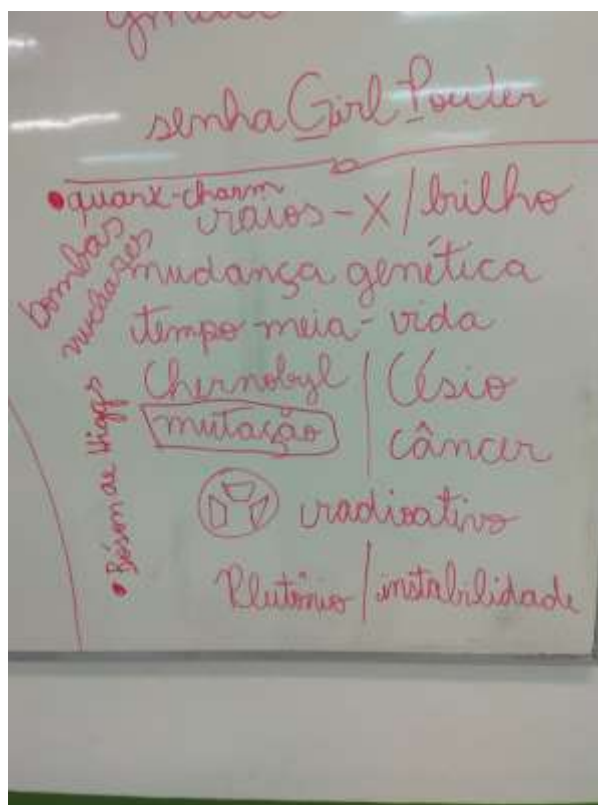 gmail
senha Girl Pouler
• quarx-charm
raios-X/brilho
bombas
nucleares
mudança genética
tempo meia-vida
Chernobyl | Césio
mutação | câncer
• Bóson de Higgs
radioativo
Plutônio | instabilidade